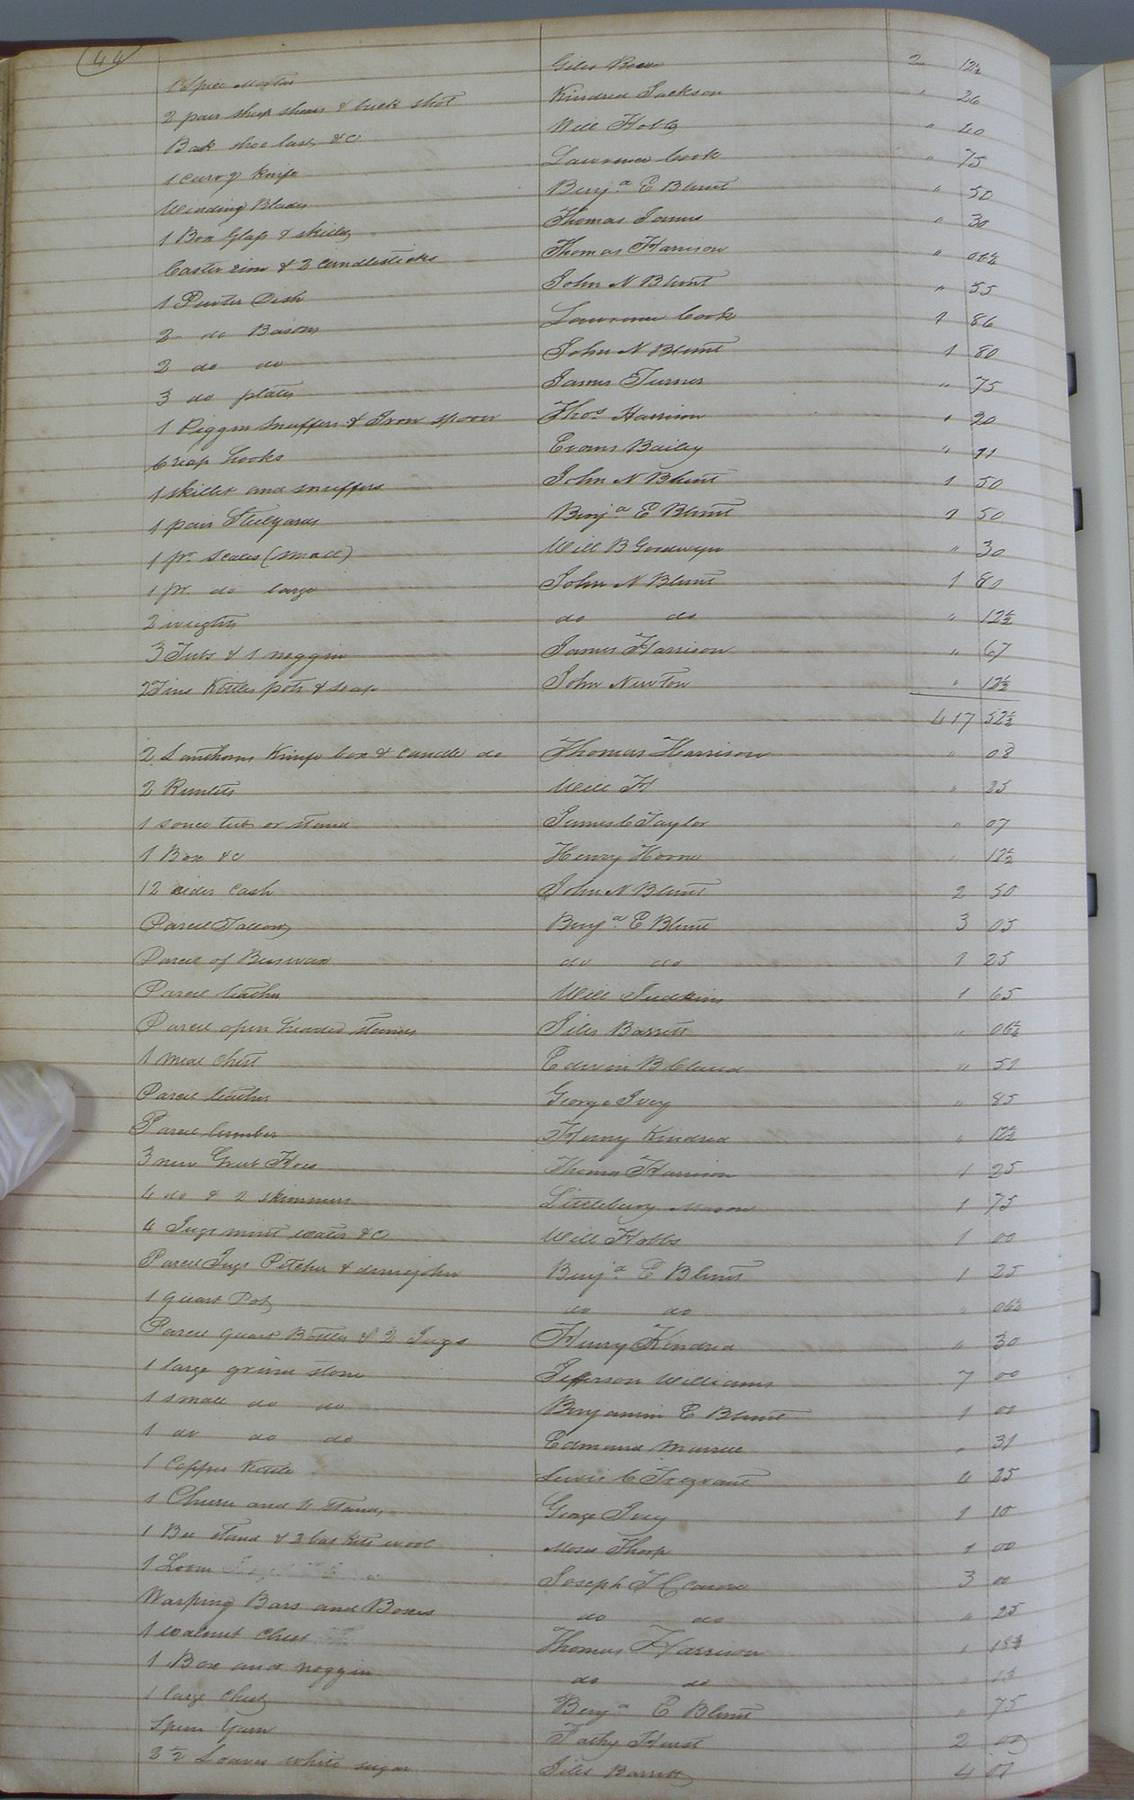 44
1 Spice Mortar Giles Reese 2 12½
2 pair sheep shears & buck shot Kindred Jackson " 26
Bask shoe last, &c Will Hobbs " 40
1 curry Knife Lawrence Cook " 75
Winding Blades Benjᵃ E Blunt " 50
1 Box Glass & skillet Thomas James " 30
Caster rim & 2 candlesticks Thomas Harrison " 06¼
1 Pewter Dish John N Blunt " 55
2 do Basons Lawrence Cook 1 86
2 do do John N Blunt 1 80
3 do plates James Turner " 75
1 Piggin Snuffers & Iron spoon Thoˢ Harrison " 20
6 reap hooks Evans Bailey " 91
1 skillet and snuffers John N Blunt 1 50
1 pair Steelyards Benjᵃ E Blunt 1 50
1 pr scales (small) Will B Goodwyn " 30
1 pr do large John N Blunt 1 80
2 weights do do " 12½
3 Tubs & 1 noggin James Harrison " 67
2 Tins Kettles pots & soap John Newton " 12½
417 52½
2 Lanthorns Knife box & candle do Thomas Harrison " 08
2 Runlets Will H " 25
1 souce tub or stand James C Taylor " 07
1 Box &c Henry Horne " 12½
12 cider cash John N Blunt 2 50
Parcel Tallow Benjᵃ E Blunt 3 05
Parcel of Beeswax do do 1 25
Parcel leather Will Judkins 1 65
Parcel open headed Giles Barrett " 06¼
1 meal Chest Edwin B Claud " 51
Parcel leather George Ivey " 85
Parcel lumber Henry Kindred " 12½
3 new Grub Hoes Thomas Harrison 1 25
4 do & 2 skimmers Littlebury Mason 1 75
4 Jugs mint water &c Will Hobbs 1 00
Parcel Jugs Pitcher & demijohn Benjᵃ E Blunt 1 25
1 quart Pot do do " 06¼
Parcel quart Bottles & 2 Jugs Henry Kindred " 30
1 large grind stone Jefferson Williams 7 00
1 small do do Benjamin E Blunt 1 00
1 do do do Edmund Murrell " 31
1 Copper Kettle Lewis C Tregvant 6 25
1 Churn and 2 Stands George Ivey 1 10
1 Bee stand & 3 baskets wool Moses Tharp 1 00
1 Loom Joseph H 3 00
Warping Bars and Boxes do do " 25
1 walnut Chest Thomas Harrison " 18¾
1 Box and noggin do do " 13
1 large Chest Benjᵃ E Blunt " 75
Spun Yarn Pathy Hurst 2 00
3½ Loaves white sugar Giles Barrett 4 01